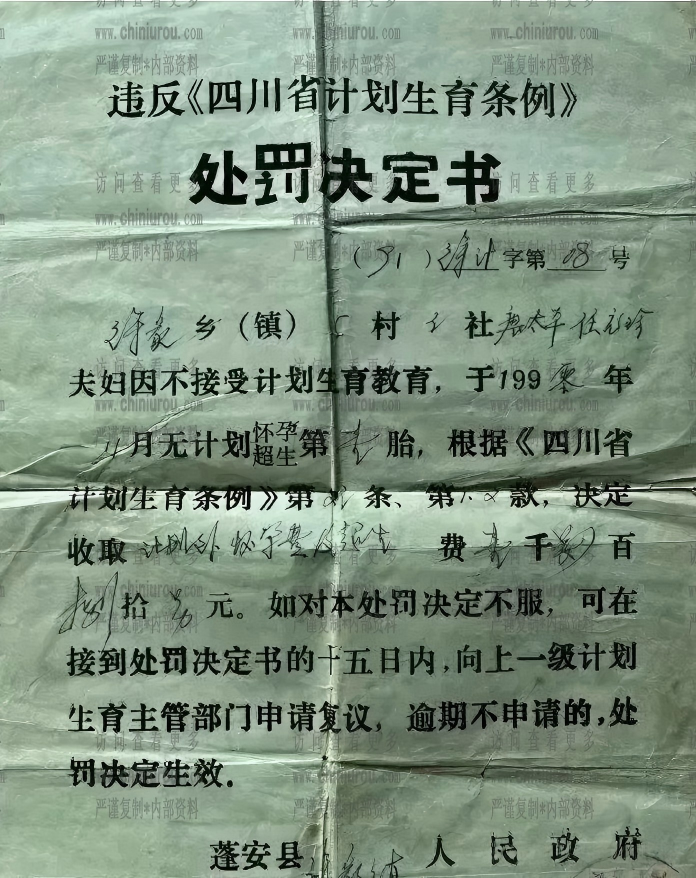 违反《四川省计划生育条例》
处罚决定书
(91) 徐计字第 08 号
徐家乡(长) 村 社唐太平
夫妇因不接受计划生育教育，于1990零年
4月无计划怀孕超生第壹胎，根据《四川省
计划生育条例》第 条、第1.2款，决定
收取计划外怀孕费及超生 费壹千 百
捌拾 元。如对本处罚决定不服，可在
接到处罚决定书的十五日内，向上一级计划
生育主管部门申请复议，逾期不申请的，处
罚决定生效。
蓬安县 人民政府
访问查看更多
www.chiniurou.com
严谨复制*内部资料